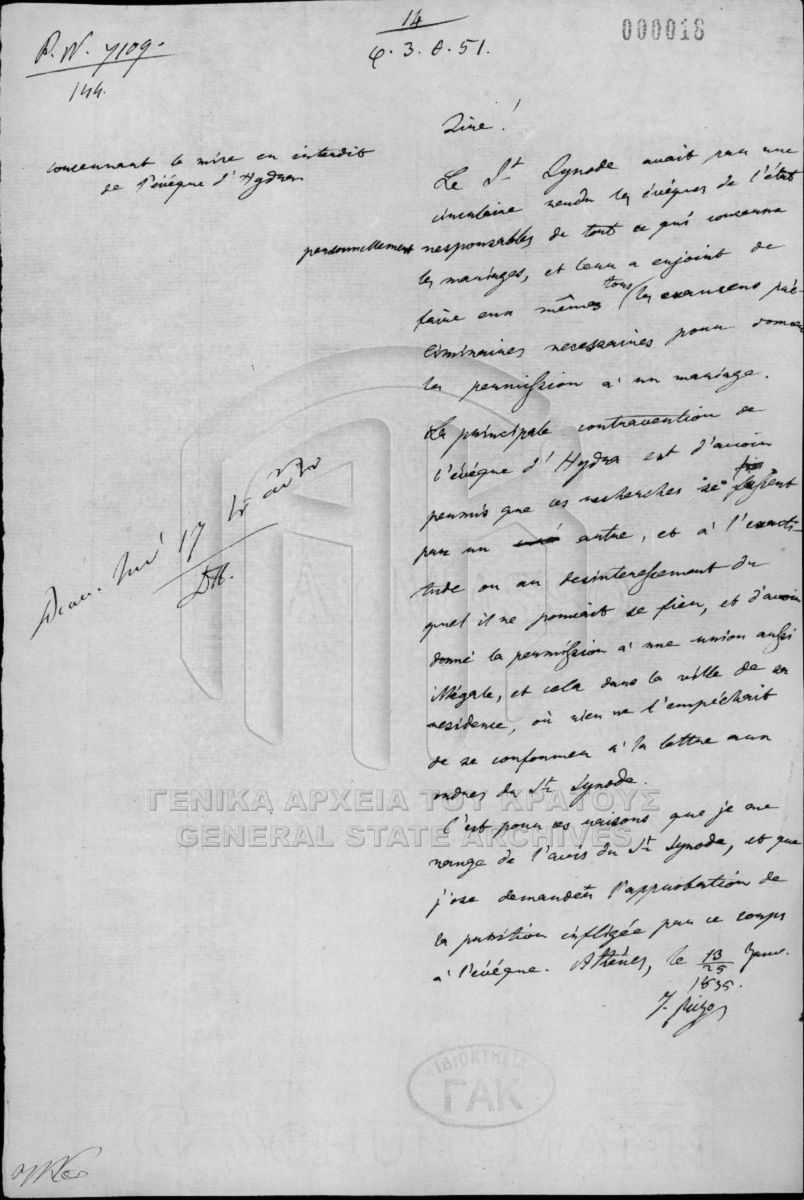 14
φ. 3. θ. 51.
000018
P. N. 7109.
144.
concernant la mise en interdit
de l'évêque d'Hydra
Sire!
Le St. Synode avait par une
circulaire rendu les évêques de l'état
personnellement responsables de tout ce qui concerne
les mariages, et leur a enjoint de
faire eux mêmes tous les examens pré-
liminaires necessaires pour donner
la permission à un mariage.
La principale contravention de
l'évêque d'Hydra est d'avoir
permis que ces recherches se fissent
par un autre, et à l'exacti-
tude ou au desinteressement du
quel il ne pouvait se fier, et d'avoir
donné la permission à une union aussi
illégale, et cela dans la ville de sa
residence, où rien ne l'empéchait
de se conformer à la lettre aux
ordres du St. Synode.
C'est pour ces raisons que je me
range de l'avis du St. Synode, et que
j'ose demander l'approbation de
la punition infligée par ce corps
à l'évêque. Athènes, le 13/25 Janv.
1835.
J. Rizo
17
ΓΕΝΙΚΑ ΑΡΧΕΙΑ ΤΟΥ ΚΡΑΤΟΥΣ
GENERAL STATE ARCHIVES
ΙΔΙΟΚΤΗΣΙΑ
ΓΑΚ